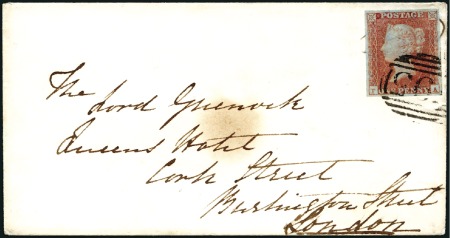 POSTAGE
PENNY
The
Lord Greenock
Queens Hotel
Cork Street
Burlington Street
London